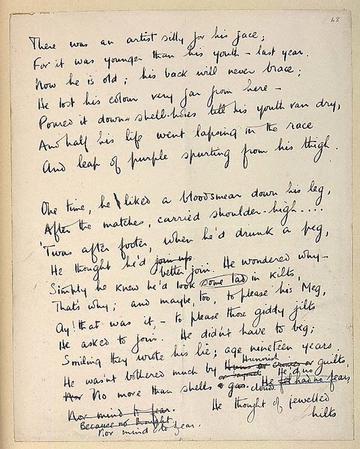 68
There was an artist silly for his face;
For it was younger than his youth – last year.
Now he is old; his back will never brace;
He lost his colour very far from here –
Poured it down shell-holes till his youth ran dry,
And half his life went lapsing in the race
And leap of purple spurting from his thigh.
One time, he liked a bloodsmear down his leg,
After the matches, carried shoulder-high....
'Twas after footer, when he'd drunk a peg,
He thought he'd join up
better join. He wondered why–
Simply he knew he'd look some lad in kilts,
That's why; and maybe, too to please his Meg,
Ay! that was it, – to please those giddy jilts
He asked to join. He didn't have to beg;
Smiling they wrote his lie; age nineteen years
Hunnish
He wasn't bothered much by or guilts,
He'd no
Nor No more than shells & gas. He had no fears
Nor mind to fear. He thought of jewelled
Because no thought hilts
Nor mind to fear.